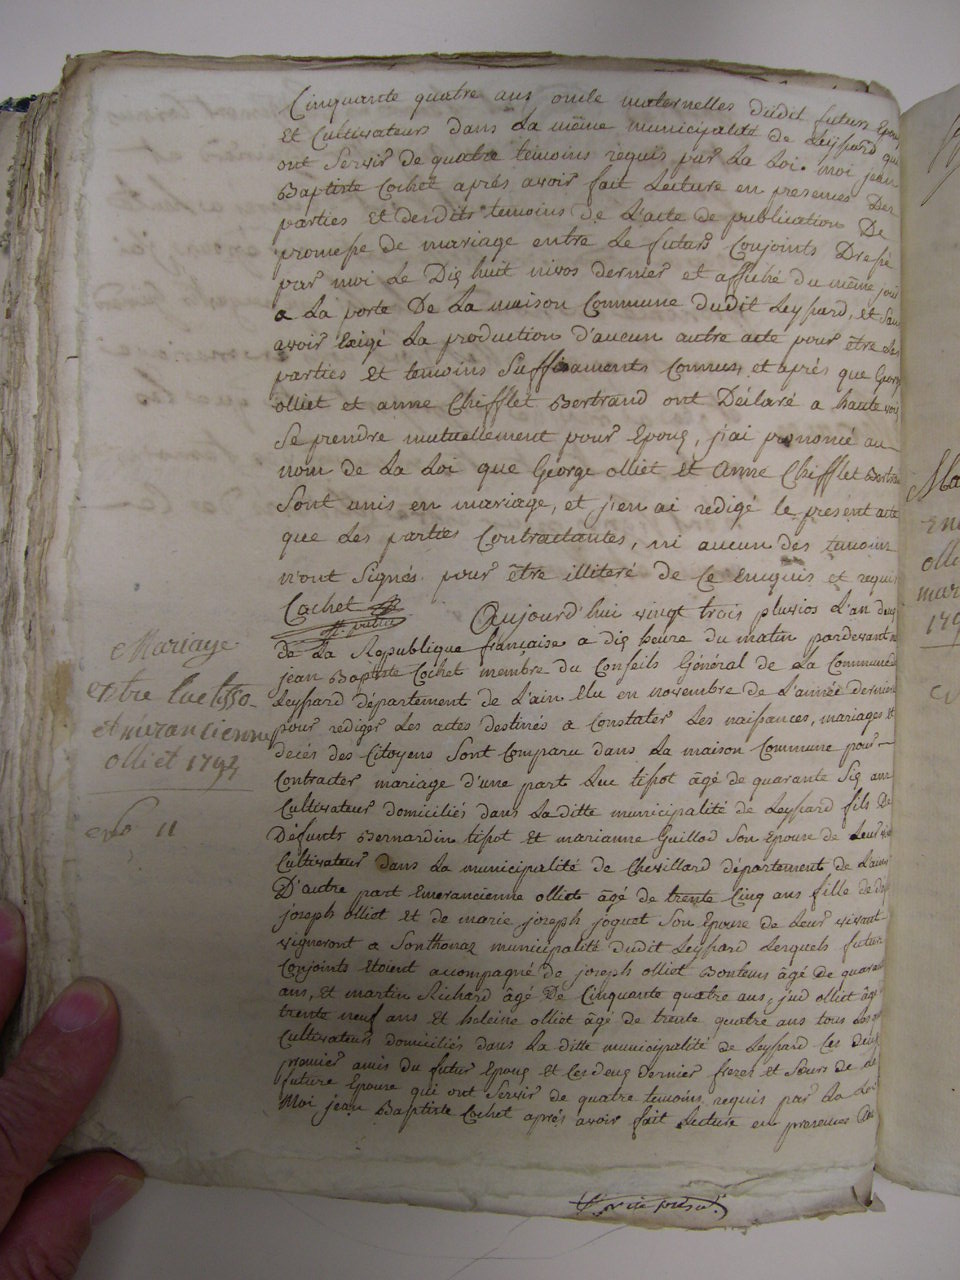 Cinquante quatre ans oncle maternelles dudit futur Epoux
Et Cultivateurs dans La même municipalité de Leyssard qui
ont Servir de quatre temoins requis par La Loi. moi jean
Baptiste Cochet aprés avoir fait Lecture en presences Des
parties Et desdits temoins De L'acte de publication De
promesse de mariage entre Le futurs Conjoints Dressé
par moi Le Dix huit nivos dernier et affiché du même jour
a La porte De La maison Commune dudit Leyssard, et Sans
avoir Exigé La production d'aucun autre acte pour être les
parties Et temoins Suffisaments Connus, et aprés que George
olliet et anne Chifflet Bertrand ont Déclaré a haute voix
Se prendre mutuellement pour Epoux, j'ai prononcé au
nom de La Loi que George olliet Et Anne Chifflet Bertrand
Sont unis en mariage, et j'en ai redigé le present acte
que Les parties Contractantes, ni aucun des temoins
n'ont Signés pour être illiteré de Ce Enquis et requis
Cochet
off. public
Aujourd'hui vingt trois pluvios L'an deux
de La Republique française a dix heure du matin pardevant moi
jean Baptiste Cochet membre du Conseils Général de La Commune de
Leyssard département de L'ain Elu en novembre de L'année derniere
pour rediger Les actes destinés a Constater Les naissances, mariages Et
décés des Citoyens Sont Comparu dans La maison Commune pour
Contracter mariage d'une part Luc tissot âgé de quarante Six ans
Cultivateur domiciliés dans La ditte municipalité de Leyssard fils De
Défunts Bernardin tissot Et marianne Guillod Son Epouse de Leur vivant
Cultivateur dans La municipalité de Chevillard département de L'ain
D'autre part Emerancienne olliet âgé de trente Cinq ans fille de défunt
joseph olliet Et de marie joseph joguet Son Epouse de Leur vivant
vigneront a Sonthonax municipalité dudit Leyssard Lesquels futurs
Conjoints Etoient acompagné de joseph olliet Bonteus âgé de quarante
ans, Et martin Richard âgé De Cinquante quatre ans, jud olliet âgé
trente neuf ans Et heleine olliet âgé de trente quatre ans tous Les
Cultivateurs domiciliés dans La ditte municipalité de Leyssard Les deux
premier amis du futur Epoux Et Les deux dernier freres et Sœurs de La
future Epouse qui ont Servir de quatre temoins requis par La Loi
Moi jean Baptiste Cochet aprés avoir fait Lecture en presences Des
Mariage
Entre Luc tisso
et Emerancienne
olliet 1794
No 11